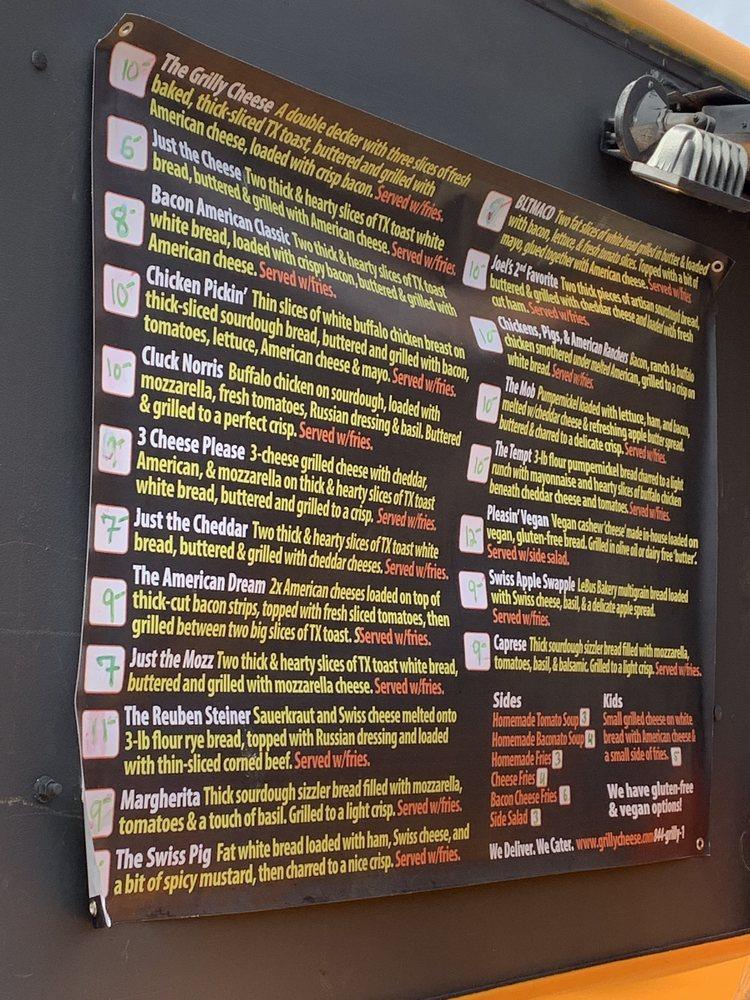 10-
The Grilly Cheese A double decker with three slices of fresh
baked, thick-sliced TX toast, buttered and grilled with
American cheese, loaded with crisp bacon. Served w/fries.
6-
Just the Cheese Two thick & hearty slices of TX toast white
bread, buttered & grilled with American cheese. Served w/fries.
8-
Bacon American Classic Two thick & hearty slices of TX toast
white bread, loaded with crispy bacon, buttered & grilled with
American cheese. Served w/fries.
10-
Chicken Pickin' Thin slices of white buffalo chicken breast on
thick-sliced sourdough bread, buttered and grilled with bacon,
tomatoes, lettuce, American cheese & mayo. Served w/fries.
10-
Cluck Norris Buffalo chicken on sourdough, loaded with
mozzarella, fresh tomatoes, Russian dressing & basil. Buttered
& grilled to a perfect crisp. Served w/fries.
3 Cheese Please 3-cheese grilled cheese with cheddar,
American, & mozzarella on thick & hearty slices of TX toast
white bread, buttered and grilled to a crisp. Served w/fries.
7-
Just the Cheddar Two thick & hearty slices of TX toast white
bread, buttered & grilled with cheddar cheeses. Served w/fries.
9-
The American Dream 2x American cheeses loaded on top of
thick-cut bacon strips, topped with fresh sliced tomatoes, then
grilled between two big slices of TX toast. SServed w/fries.
7
Just the Mozz Two thick & hearty slices of TX toast white bread,
buttered and grilled with mozzarella cheese. Served w/fries.
11-
The Reuben Steiner Sauerkraut and Swiss cheese melted onto
3-lb flour rye bread, topped with Russian dressing and loaded
with thin-sliced corned beef. Served w/fries.
9-
Margherita Thick sourdough sizzler bread filled with mozzarella,
tomatoes & a touch of basil. Grilled to a light crisp. Served w/fries.
The Swiss Pig Fat white bread loaded with ham, Swiss cheese, and
a bit of spicy mustard, then charred to a nice crisp. Served w/fries.
BLTMACD Two fat slices of white bread grilled in butter & loaded
with bacon, lettuce, & fresh tomato slices. Topped with a bit of
mayo, glued together with American cheese. Served w/fries
10-
Joel's 2nd Favorite Two thick pieces of artisan sourdough bread,
buttered & grilled with cheddar cheese and loaded with fresh
cut ham. Served w/fries.
10-
Chickens, Pigs, & American Ranchers Bacon, ranch & buffalo
chicken smothered under melted American, grilled to a crisp on
white bread. Served w/fries.
10-
The Mob Pumpernickel loaded with lettuce, ham, and bacon,
melted w/cheddar cheese & refreshing apple butter spread,
buttered & charred to a delicate crisp. Served w/fries.
10-
The Tempt 3-lb flour pumpernickel bread charred to a light
runch with mayonnaise and hearty slices of buffalo chicken
beneath cheddar cheese and tomatoes. Served w/fries.
12-
Pleasin' Vegan Vegan cashew 'cheese' made in-house loaded on
vegan, gluten-free bread. Grilled in olive oil or dairy free 'butter'.
Served w/side salad.
9-
Swiss Apple Swapple LeBus Bakery multigrain bread loaded
with Swiss cheese, basil, & a delicate apple spread.
Served w/fries.
9-
Caprese Thick sourdough sizzler bread filled with mozzarella,
tomatoes, basil, & balsamic. Grilled to a light crisp. Served w/fries.
Sides
Homemade Tomato Soup 3
Homemade Baconato Soup 4
Homemade Fries 3
Cheese Fries 4
Bacon Cheese Fries 6
Side Salad 3
Kids
Small grilled cheese on white
bread with American cheese &
a small side of fries. 5
We have gluten-free
& vegan options!
We Deliver. We Cater. www.grillycheese.com 844-grilly-1